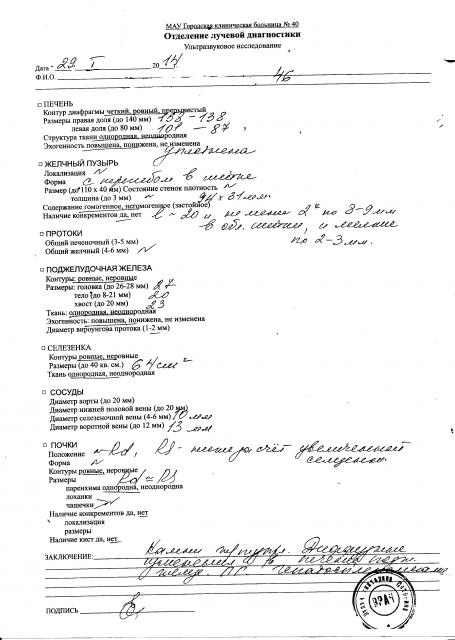 МАУ Городская клиническая больница № 40
Отделение лучевой диагностики
Ультразвуковое исследование
Дата " 29. I 2014
Ф.И.О. 46
□ ПЕЧЕНЬ
Контур диафрагмы четкий, ровный, прерывистый
Размеры правая доля (до 140 мм) 158-138
левая доля (до 80 мм) 101 - 87
Структура ткани однородная, неоднородная
Эхогенность повышена, понижена, не изменена
уплотнена
□ ЖЕЛЧНЫЙ ПУЗЫРЬ
Локализация N
Форма с перегибом в шейке
Размер (до 110 х 40 мм) Состояние стенок плотность N
толщина (до 3 мм) 94 х 31 мм.
Содержание гомогенное, негомогенное (застойное)
Наличие конкрементов да, нет l ~ 20 и не менее 2х по 8-9 мм
в обл. шейки, и мелкие
по 2-3 мм.
□ ПРОТОКИ
Общий печеночный (3-5 мм)
Общий желчный (4-6 мм) N
□ ПОДЖЕЛУДОЧНАЯ ЖЕЛЕЗА
Контуры: ровные, неровные
Размеры: головка (до 26-28 мм) 27
тело (до 8-21 мм) 20
хвост (до 20 мм) 23
Ткань: однородная, неоднородная
Эхогенность: повышена, понижена, не изменена
Диаметр вирсунгова протока (1-2 мм)
□ СЕЛЕЗЕНКА
Контуры ровные, неровные
Размеры (до 40 кв. см.) 64 см²
Ткань однородная, неоднородная
□ СОСУДЫ
Диаметр аорты (до 20 мм)
Диаметр нижней половой вены (до 20 мм)
Диаметр селезеночной вены (4-6 мм) 10 мм
Диаметр воротной вены (до 12 мм) 13 мм
□ ПОЧКИ
Положение N Rd, RS - ниже за счёт увеличенной
селезенки
Форма N
Контуры ровные, неровные
Размеры Rd ≈ RS
паренхима однородна, неоднородна
лоханки
чашечки N
Наличие конкрементов да, нет
локализация
размеры
Наличие кист да, нет
ЗАКЛЮЧЕНИЕ: Камни ж. пузыря. Диффузные
изменения в печени, подж.
железе. ПГ. Гепатоспленомегалия
ПОДПИСЬ
ВРАЧ